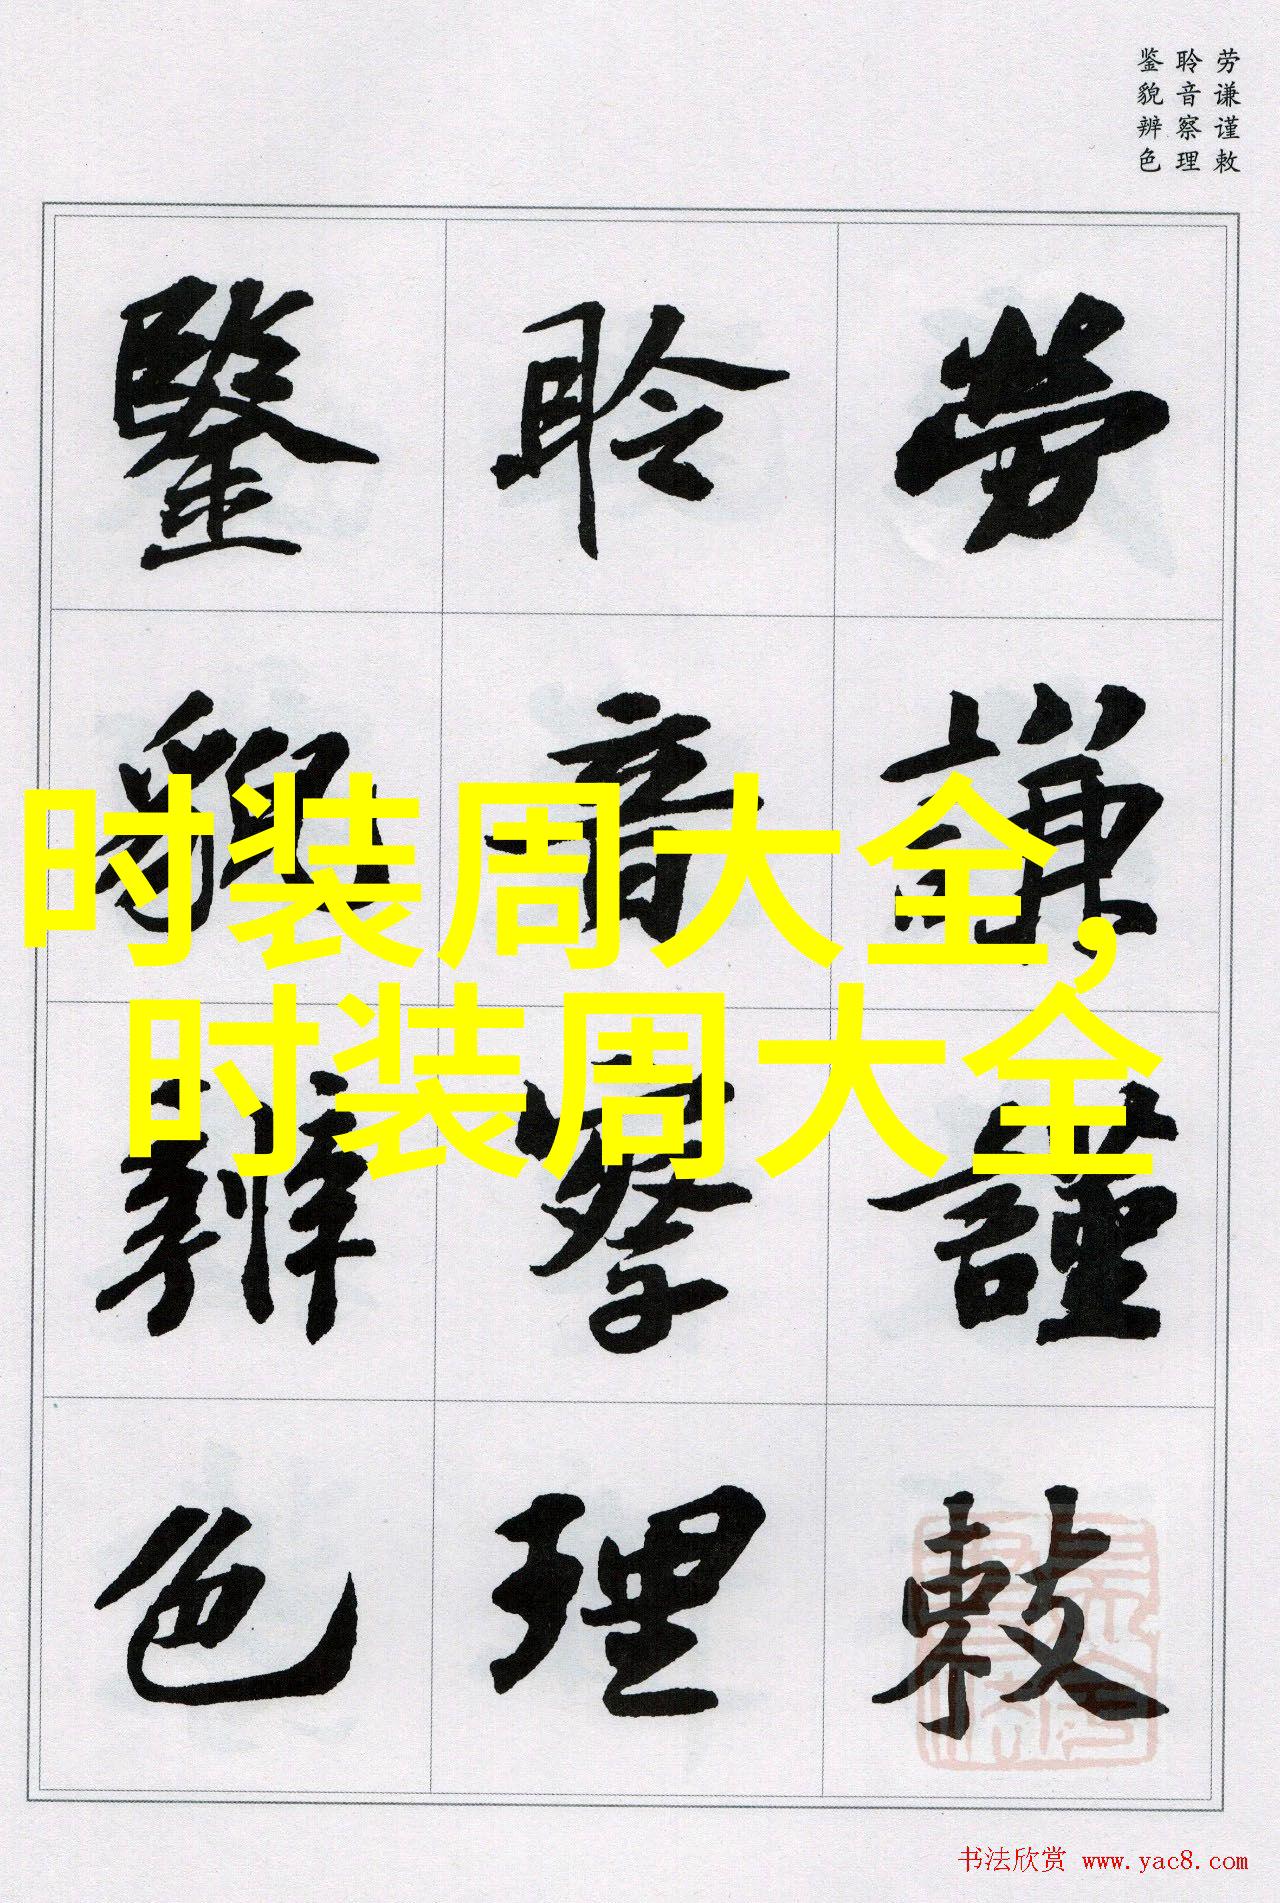 劳谦谨敕
聆音察理
鉴貌辨色
劳謙謹敕
聆音察理
鑒貌辨色
时装周大全,
时装周大全
书法欣赏 www.yac8.com